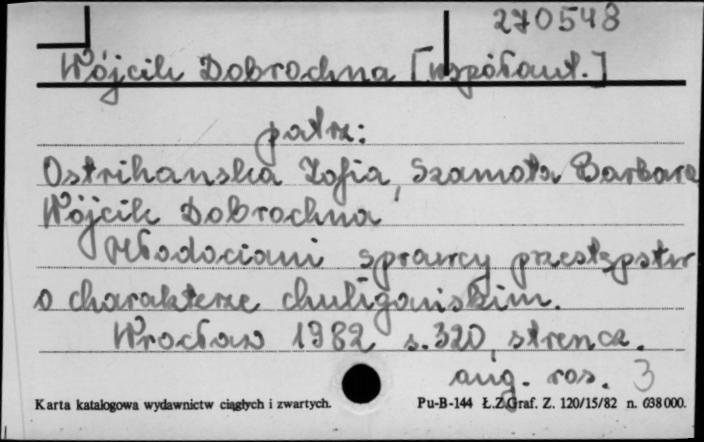 270548
Wójcik Dobrochna [współaut.]
patrz:
Ostrihanska Zofia, Szamota Barbara
Wójcik Dobrochna
Młodociani sprawcy przestępstw
o charakterze chuligańskim.
Wrocław 1982 s. 320, streszcz.
ang. ros. 3
Karta katalogowa wydawnictw ciągłych i zwartych. Pu-B-144 Ł.Z.Graf. Z. 120/15/82 n. 638 000.